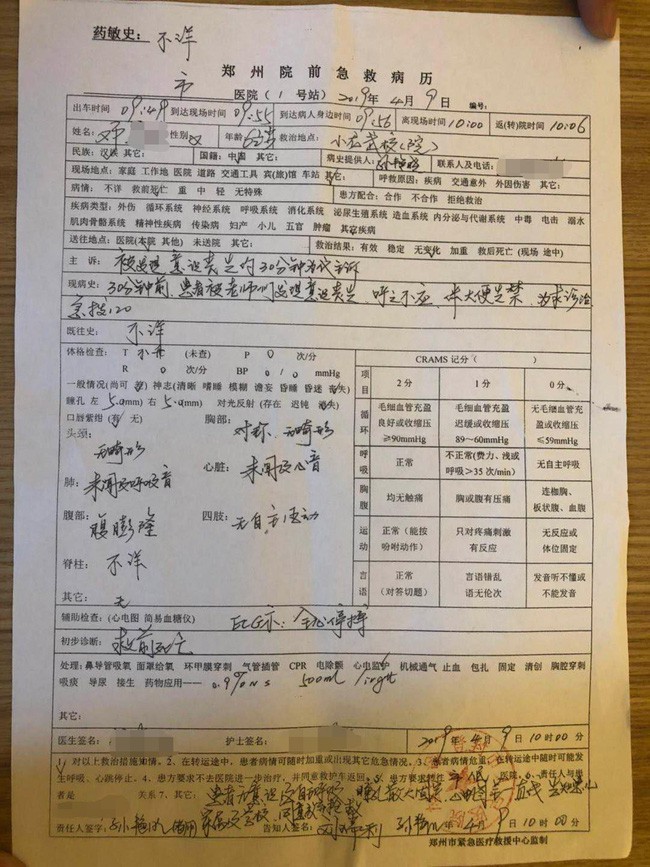 药敏史: 不详
郑州市院前急救病历
医院(1号站) 2019年4月9日 编号:
出车时间 09:49 到达现场时间 09:55 到达病人身边时间 09:56 离现场时间 10:00 返(转)院时间 10:06
姓名: 性别 女 年龄 救治地点: 小
民族: 汉族 其它: 国籍: 中国 其它: 病史提供人: 联系人及电话:
现场地点: 家庭 工作地 医院 道路 交通工具 宾(旅)馆 车站 其它: 呼救原因: 疾病 交通意外 外因伤害 其它:
病情: 不详 救前死亡 重 中 轻 无特殊 患方配合: 合作 不合作 拒绝治疗
疾病类型: 外伤 循环系统 神经系统 呼吸系统 消化系统 泌尿生殖系统 造血系统 内分泌与代谢系统 中毒 电击 溺水
肌肉骨骼系统 精神性疾病 传染病 妇产 小儿 五官 肿瘤 其它疾病
送往地点: 医院(本院 其他) 未送院 其它: 救治结果: 有效 稳定 无变化 加重 救后死亡(现场 途中)
主 诉: 被发现意识丧失约30分钟为代主诉
现病史: 30分钟前,患者被老师们发现意识丧失、呼之不应、伴大便失禁、为求诊治
急拨120
既往史: 不详
体格检查: T 不升 (未查) P 0 次/分
R 0 次/分 BP 0/0 mmHg
一般情况(尚可 差) 神志(清晰 嗜睡 模糊 谵妄 昏睡 昏迷 丧失)
瞳孔 左 5.0 mm) 右 5.0 mm) 对光反射(存在 迟钝 消失)
口唇紫绀(有 无) 胸部: 对称、无畸形
头颈: 无畸形
心脏: 未闻及心音
肺: 未闻及呼吸音
腹部: 腹膨隆 四肢: 无自主活动
脊柱: 不详
其它: 无
CRAMS 记分( )
项目 2分 1分 0分
循环 毛细血管充盈良好或收缩压≥90mmHg 毛细血管充盈迟缓或收缩压89~60mmHg 无毛细血管充盈或收缩压≤59mmHg
呼吸 正常 不正常(费力、浅或呼吸>35次/min) 无自主呼吸
胸腹 均无触痛 胸或腹有压痛 连枷胸、板状腹、血腹
运动 正常(能按吩咐动作) 只对疼痛刺激有反应 无反应或体位固定
言语 正常(对答切题) 言语错乱语无伦次 发音听不懂或不能发音
辅助检查: (心电图 简易血糖仪) ECG示: 全心停搏
初步诊断: 救前死亡
处理: 鼻导管吸氧 面罩给氧 环甲膜穿刺 气管插管 CPR 电除颤 心电监护 机械通气 止血 包扎 固定 清创 胸腔穿刺
吸痰 导尿 接生 药物应用—— 0.9%NS 500ml
其它:
医生签名: 护士签名: 2019年4月9日10时00分
1、对以上救治措施知情。2、在转运途中,患者病情可随时加重或出现其它危急情况。3、患者病情危重,在转运途中随时可能发
生呼吸、心跳停止。4、患方要求不去医院进一步治疗,并同意救护车返回。5、患方要求转往 医院。6、责任人与患
者是 关系 7、患者意识丧失 瞳孔散大固定、心电图呈一直线
责任人签字: 告知人签名: 4月9日10时00分
郑州市紧急医疗救援中心监制